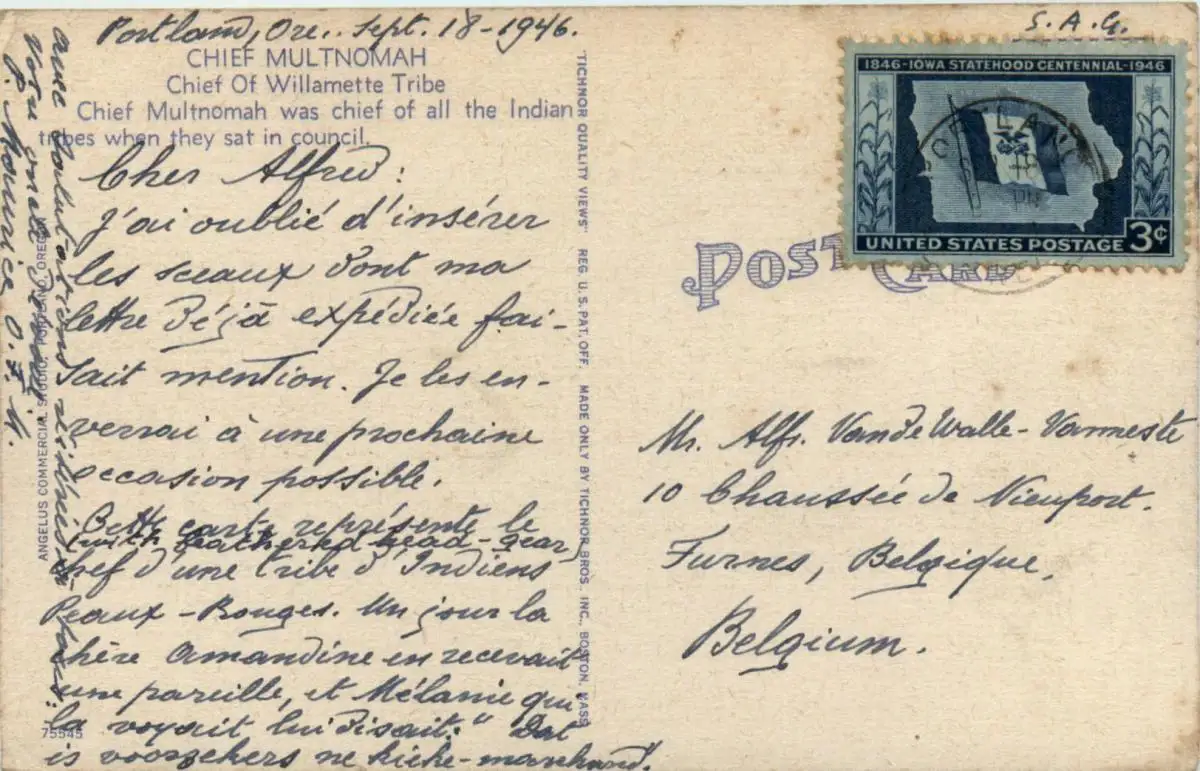 Portland, Ore., Sept. 18-1946.
CHIEF MULTNOMAH
Chief Of Willamette Tribe
Chief Multnomah was chief of all the Indian
tribes when they sat in council.
Cher Alfred:
J'ai oublié d'insérer
les sceaux dont ma
lettre déjà expédiée fai-
sait mention. Je les en-
verrai à une prochaine
occasion possible.
Cette carte représente le
(with feathered head-gear)
chef d'une tribe d'Indiens
Peaux-Rouges. Un jour la
chère Amandine en recevait
une pareille, et Mélanie qui
la voyait, lui disait: "Dat
is voorzekers ne kieke-marchand."
avec salutations à tous:
votre oncle
P. Maurice O.F.M.
ANGELUS COMMERCIAL STUDIO, PORTLAND, OREG.
75545
"TICHNOR QUALITY VIEWS" REG. U.S. PAT. OFF. MADE ONLY BY TICHNOR BROS., INC., BOSTON, MASS.
S.A.G.
1846-IOWA STATEHOOD CENTENNIAL-1946
UNITED STATES POSTAGE 3¢
PORTLAND
POST CARD
Mr. Alfr. VandeWalle-Vanneste
10 Chaussée de Nieuport.
Furnes, Belgique,
Belgium.